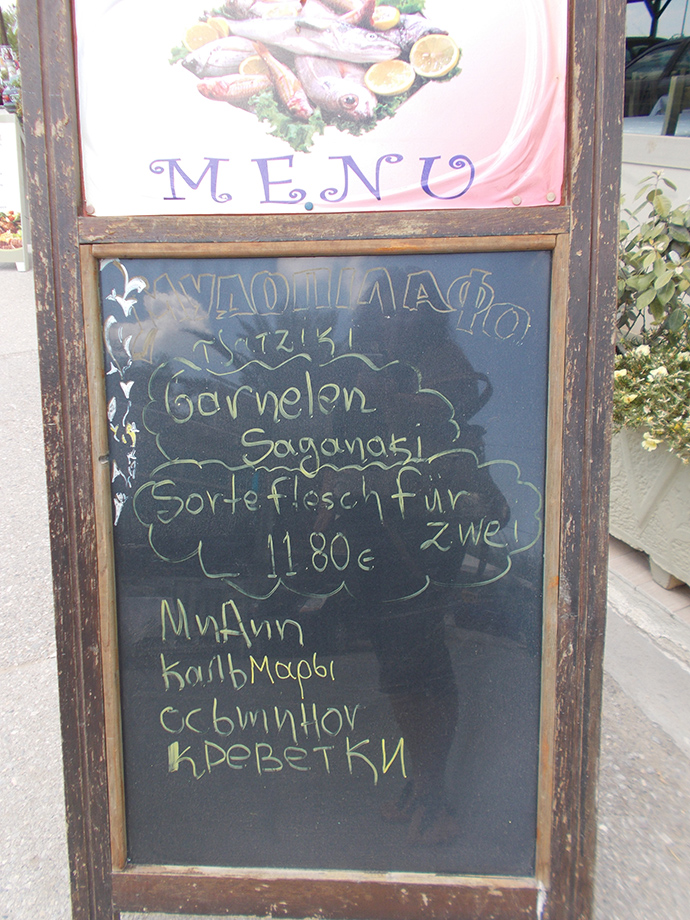 MENU
ΜΥΔΟΠΙΛΑΦΟ
TSATZIKI
Garnelen
Saganaki
Sorteflesch für
zwei
11.80 €
МиДии
КальМары
осьминог
КРЕВЕТКИ